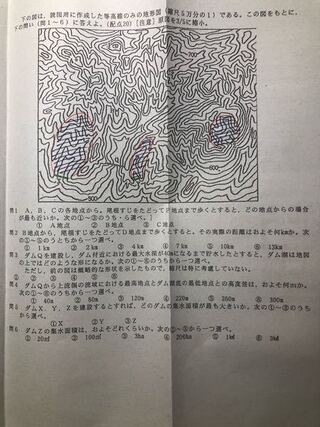 下の図は，説明用に作成した等高線のみの地形図（縮尺５万分の１）である。この図をもとに，
下の問い（問１～６）に答えよ。（配点20）［注意］原図を3/5に縮小。
700
600
500
問１ Ａ，Ｂ，Ｃの各地点から，尾根すじをたどってＰ地点まで歩くとすると，どの地点からの場合
が最も近いか。次の①～③のうちから選べ。
① Ａ地点 ② Ｂ地点 ③ Ｃ地点
問２ Ｂ地点から，尾根すじをたどってＤ地点まで歩くとすると，その実際の距離はおよそ何kmか。次
の①～⑥のうちから一つ選べ。
① 1km ② 2km ③ 4km ④ 7km ⑤ 10km ⑥ 13km
問３ ダムＱを建設し，ダム付近における最大水深が40mになるまで貯水したとすると，ダム湖は地図
の上ではどのような形になるか。次の①～⑥のうちから一つ選べ。
ただし，前の図は概略的な形状を示したもので，縮尺は特に考慮していない。
① ② ③ ④ ⑤ ⑥
問４ ダムＱから上流側の流域における最高地点とダム堰底の最低地点との高度差は，およそ何mか。
次の①～⑥のうちから一つ選べ。
① 40m ② 80m ③ 120m ④ 220m ⑤ 260m ⑥ 300m
問５ ダムＸ，Ｙ，Ｚを建設するとすれば，どのダムの集水面積が最も大きいか。次の①～③のうち
から選べ。
① Ｘ ② Ｙ ③ Ｚ
問６ ダムＺの集水面積は，およそどれくらいか。次の①～⑥から一つ選べ。
① 20㎡ ② 100㎡ ③ 3ha ④ 200ha